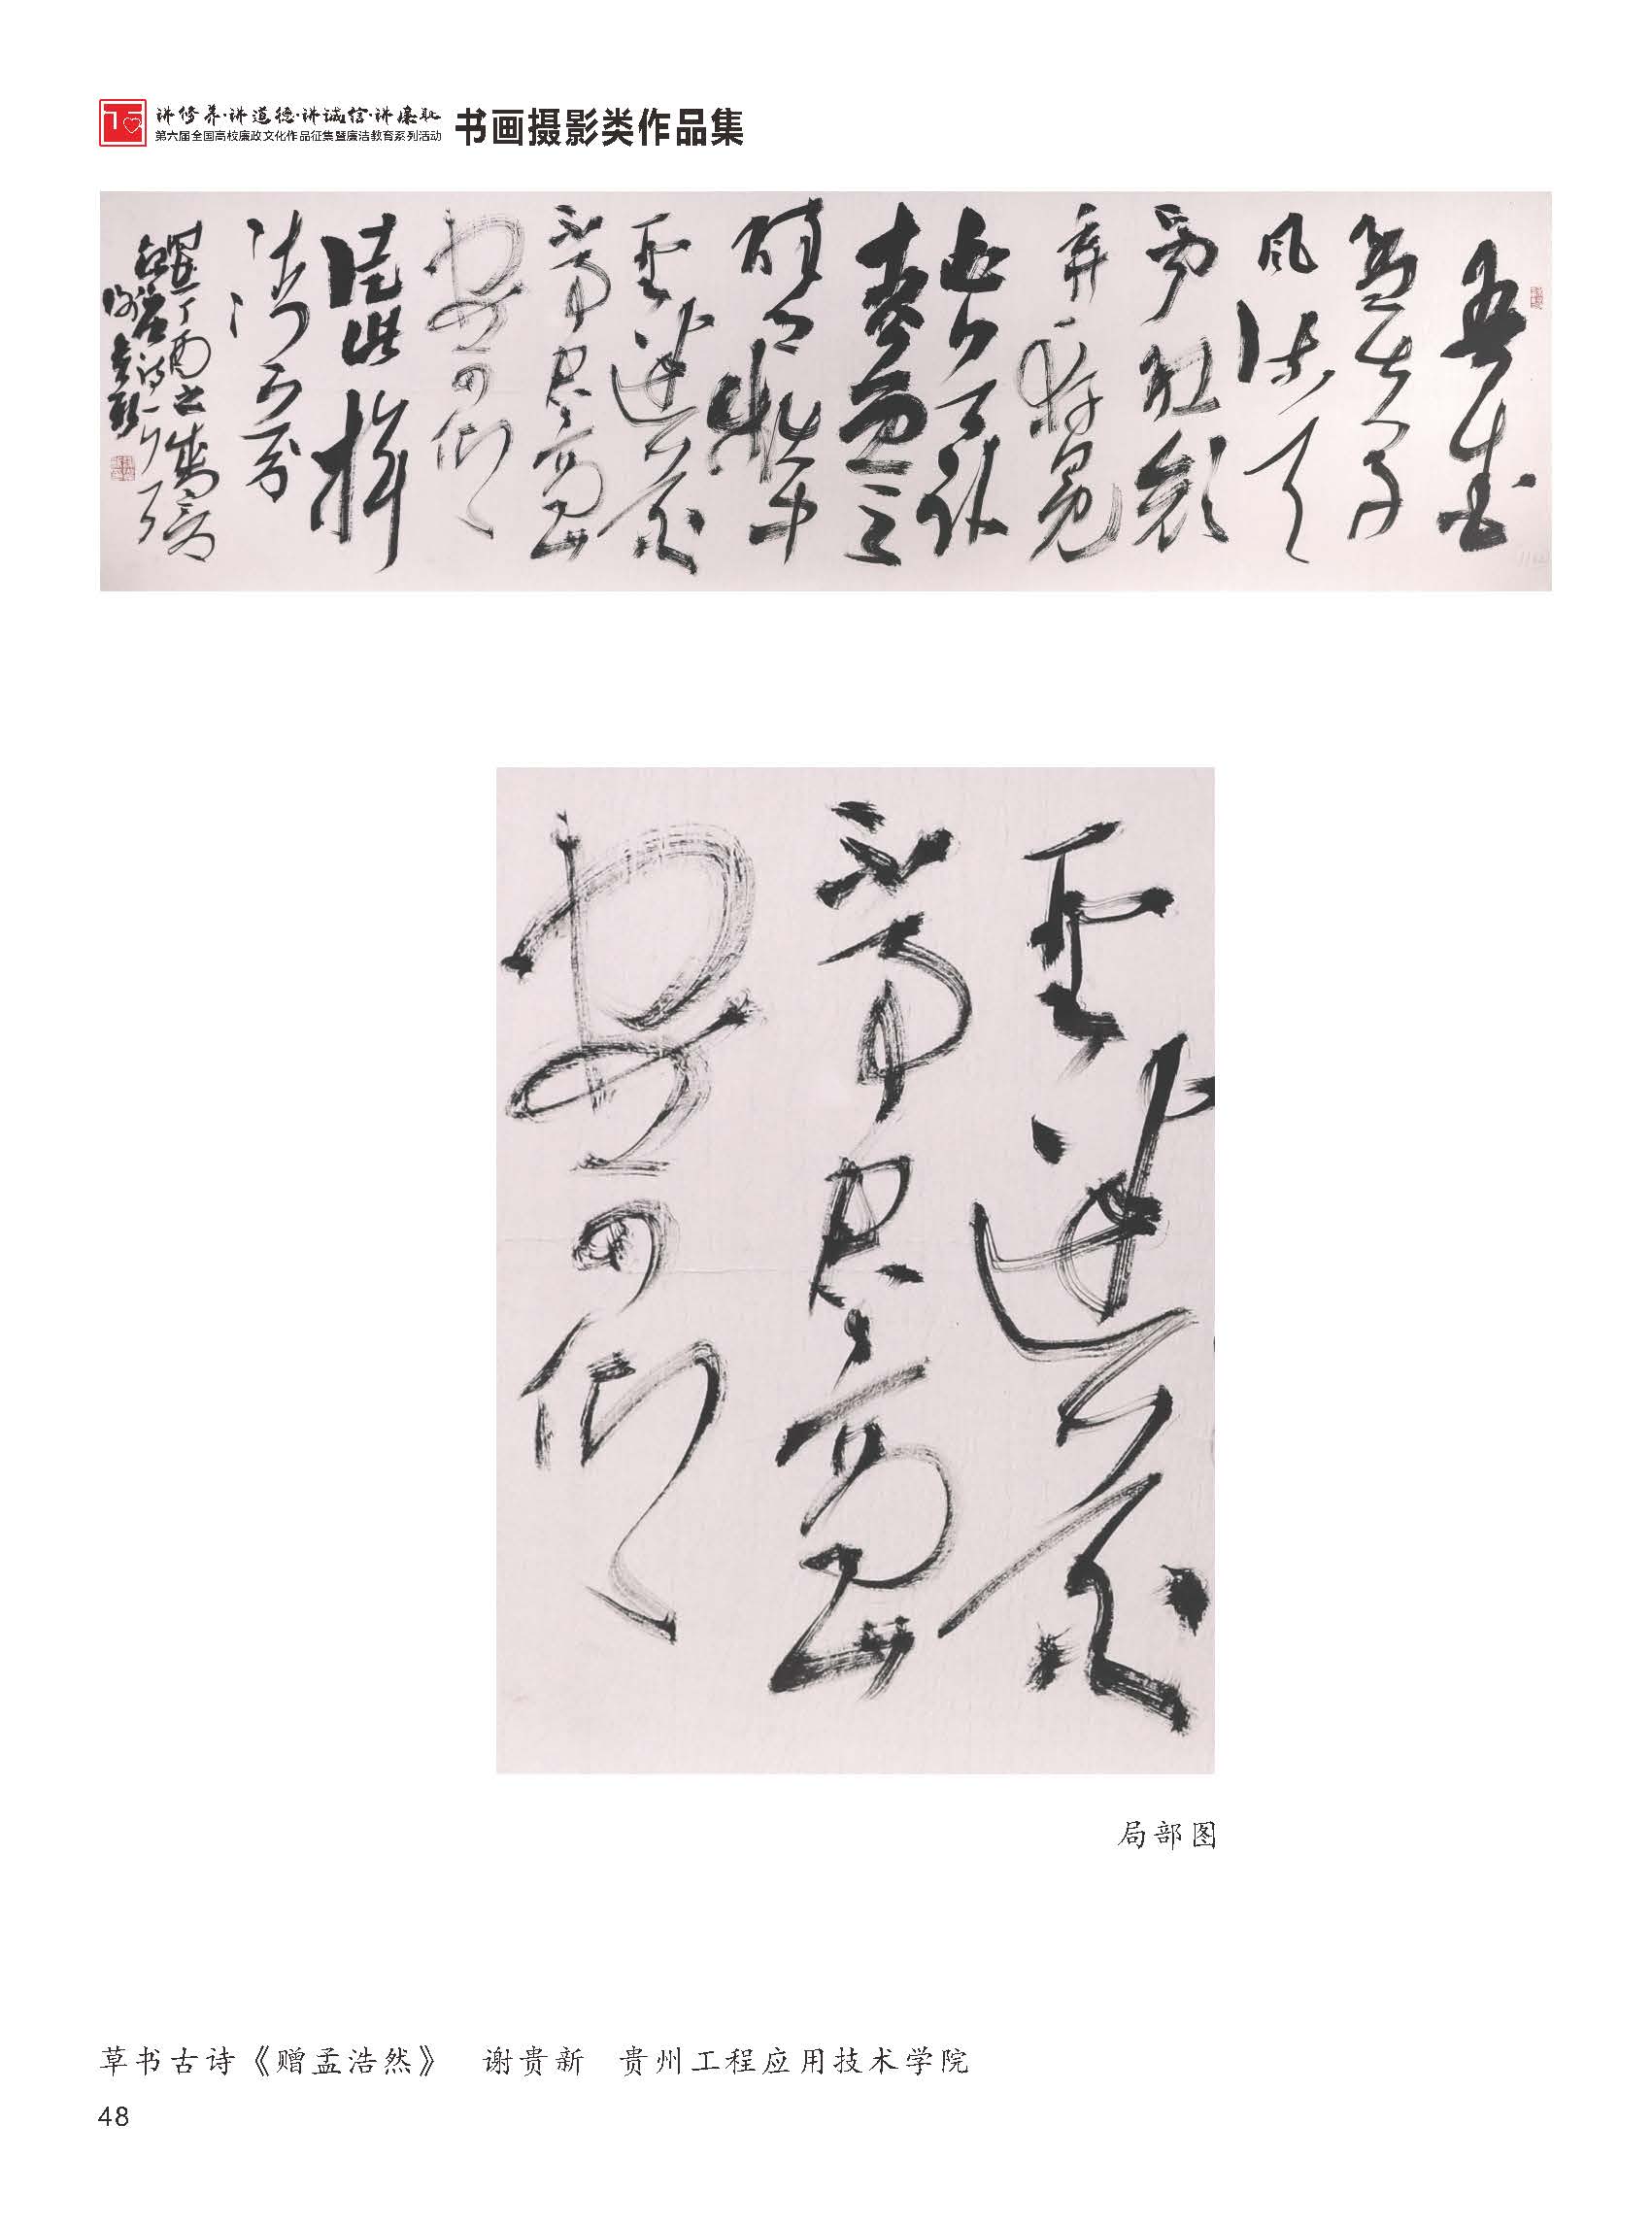 讲修养·讲道德·讲诚信·讲廉耻
第六届全国高校廉政文化作品征集暨廉洁教育系列活动
书画摄影类作品集
吾爱
孟夫子
风流天
下闻红颜
弃轩冕
白首卧
枩雲
醉月频中
圣迷花
不事君高山
安可仰
徒此揖
清芬
丁酉之
圣迷花
不事君高山
安可仰
局部图
草书古诗《赠孟浩然》 谢贵新 贵州工程应用技术学院
48